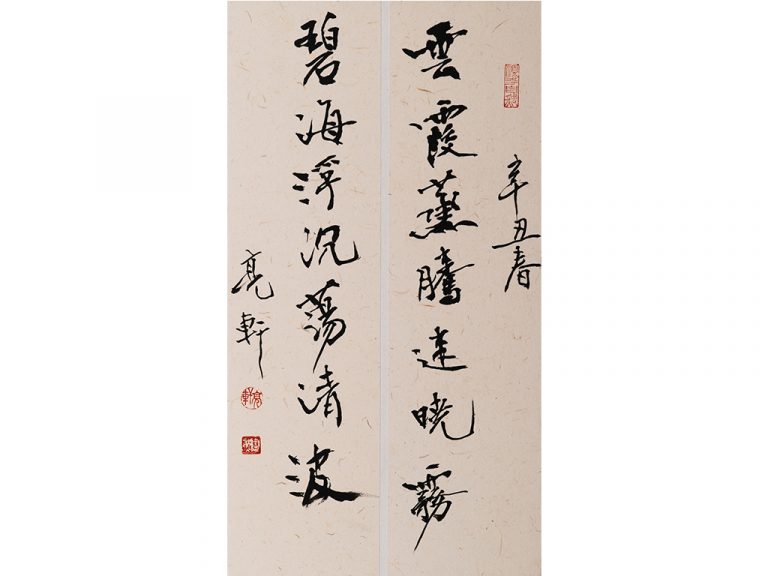 辛丑春
雲霞蒸騰迷曉霧
碧海浮沉蕩清波
亮軒
亮軒